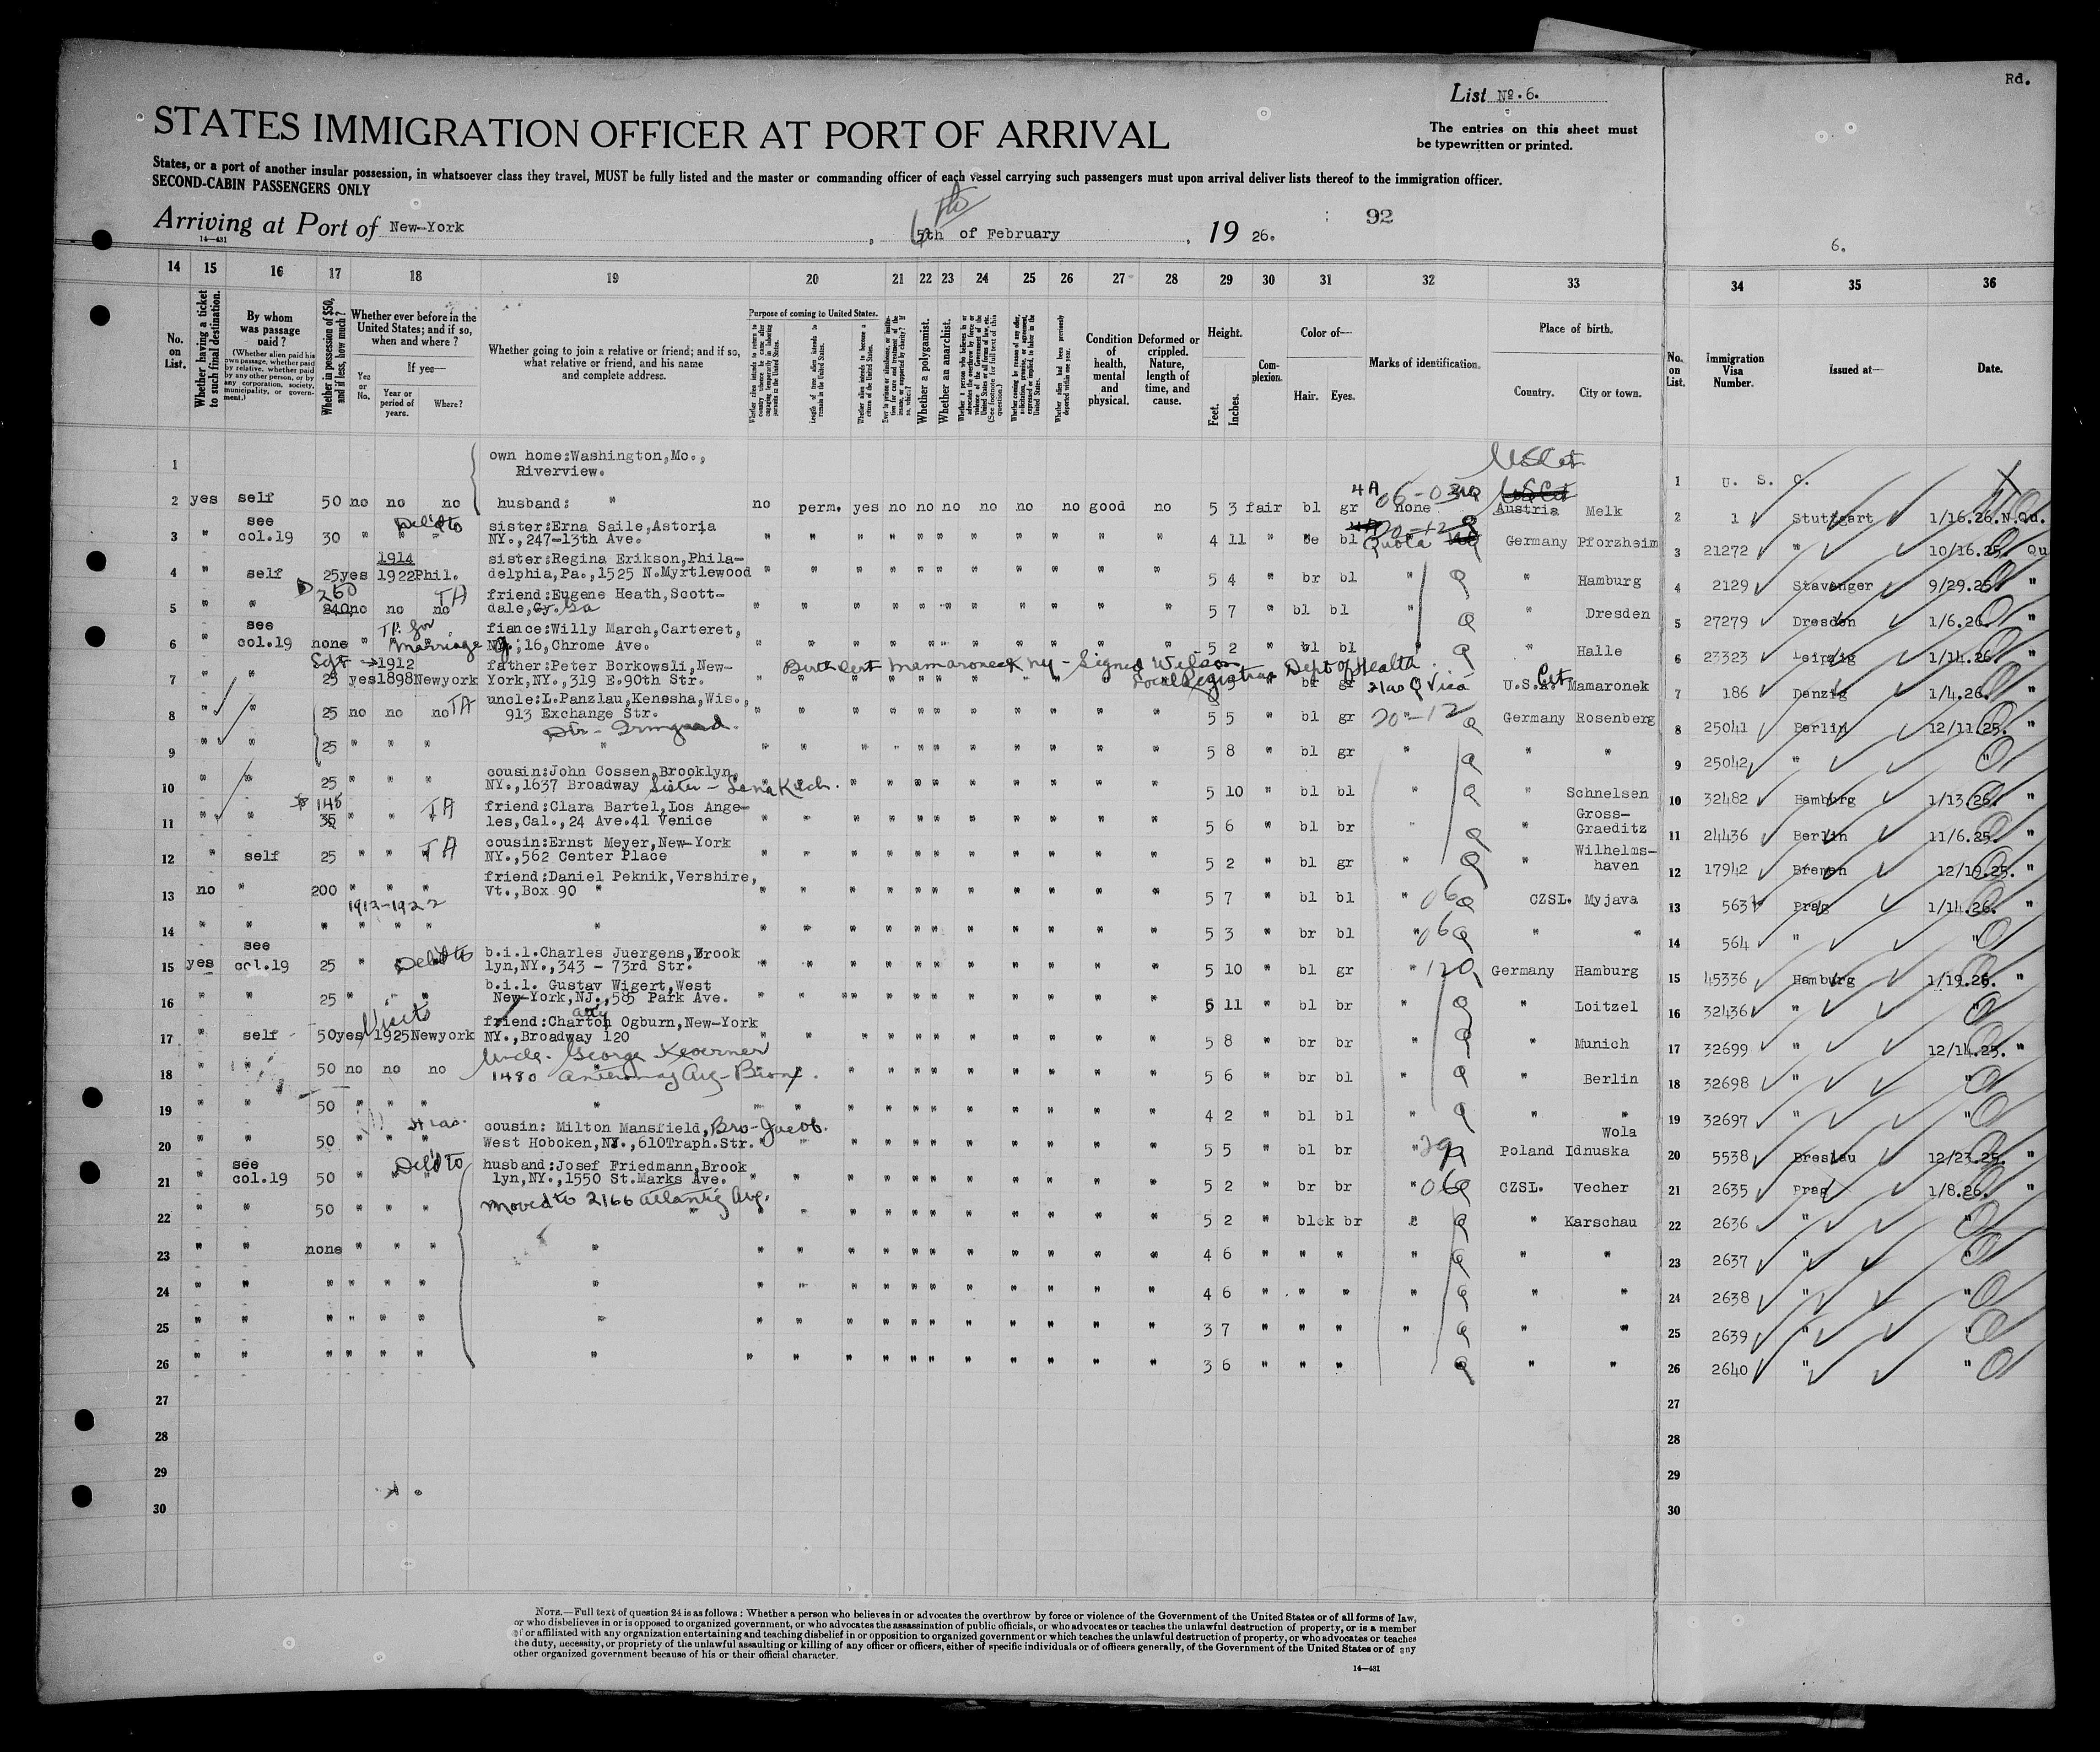 Rd.
List No. 6.
STATES IMMIGRATION OFFICER AT PORT OF ARRIVAL
The entries on this sheet must
be typewritten or printed.
States, or a port of another insular possession, in whatsoever class they travel, MUST be fully listed and the master or commanding officer of each vessel carrying such passengers must upon arrival deliver lists thereof to the immigration officer.
SECOND-CABIN PASSENGERS ONLY
Arriving at Port of New-York, 5th 6th of February, 1926. 92
14—431
6.
14 15 16 17 18 19 20 21 22 23 24 25 26 27 28 29 30 31 32 33 34 35 36
No. on List.
Whether having a ticket to such final destination.
By whom was passage paid?
(Whether alien paid his own passage, whether paid by relative, whether paid by any other person, or by any corporation, society, municipality, or government.)
Whether in possession of $50, and if less, how much?
Whether ever before in the United States; and if so, when and where?
If yes—
Yes or No.
Year or period of years.
Where?
Whether going to join a relative or friend; and if so, what relative or friend, and his name and complete address.
Purpose of coming to United States.
Length of time alien intends to remain in the United States.
Whether alien intends to become a citizen of the United States.
Whether a polygamist.
Whether an anarchist.
Condition of health, mental and physical.
Deformed or crippled. Nature, length of time, and cause.
Height.
Feet. Inches.
Complexion.
Color of—
Hair. Eyes.
Marks of identification.
Place of birth.
Country. City or town.
No. on List.
Immigration Visa Number.
Issued at—
Date.
1 own home:Washington,Mo., Riverview. USCit 1 U. S. C.
2 yes self 50 no no no husband: " no perm. yes no no no no no no good no 5 3 fair bl gr none Austria Melk 2 1 Stuttgart 1/16.26.N.Qu.
3 " see col.19 30 " " " sister:Erna Saile,Astoria NY.,247-13th Ave. " " " " " " " " " " " 4 11 " be bl Quota Germany Pforzheim 3 21272 " 10/16.25. Qu
4 " self 25 yes 1914 1922 Phil. sister:Regina Erikson,Philadelphia,Pa.,1525 N.Myrtlewood " " " " " " " " " " " 5 4 " br bl " Q " Hamburg 4 2129 Stavanger 9/29.25 "
5 " " 240 260 no no no TA friend:Eugene Heath,Scottdale,Gy. Ga " " " " " " " " " " " 5 7 " bl bl " Q " Dresden 5 27279 Dresden 1/6.26. "
6 " see col.19 none " TA for marriage fiance:Willy March,Carteret, NJ.;16,Chrome Ave. " " " " " " " " " " " 5 2 " bl bl " Q " Halle 6 23323 Leipzig 1/14.26. "
Birth Cert Mamaroneck NY - Signed Wilson Local Registrar Dept of Health
7 " " 25 yes 1912 1898 Newyork father:Peter Borkowsli,New-York,NY.,319 E.90th Str. " br gr U.S.A. Cit. Mamaronek 7 186 Danzig 1/4.26. "
8 " " 25 no no no TA uncle:L.Panzlau,Kenosha,Wis., 913 Exchange Str. " " " " " " " " " " " 5 5 " bl gr 20-12 Q Germany Rosenberg 8 25041 Berlin 12/11.25. "
9 " " 25 " " " " " " " " " " " " " " " 5 8 " bl gr " Q " " 9 25042 " "
10 " " 25 " " " cousin:John Cossen,Brooklyn, NY.,1637 Broadway Sister - Lena Kach. " " " " " " " " " " 5 10 " bl bl " Q " Schnelsen 10 32482 Hamburg 1/13.26. "
11 " " 35 $ 148 " " TA friend:Clara Bartel,Los Angeles,Cal.,24 Ave.41 Venice " " " " " " " " " " " 5 6 " bl br " Q " Gross-Graeditz 11 24436 Berlin 11/6.25. "
12 " self 25 " " TA cousin:Ernst Meyer,New-York NY.,562 Center Place " " " " " " " " " " " 5 2 " bl gr " Q " Wilhelmshaven 12 17942 Bremen 12/19.25. "
13 no " 200 " " " friend:Daniel Peknik,Vershire, Vt.,Box 90 " " " " " " " " " " " " 5 7 " bl bl " 06 Q CZSL. Myjava 13 563 Prag 1/14.26. "
1912-1922
14 " " " " " " " " " " " " " " " " " " 5 3 " br bl " 06 Q " " 14 564 " "
15 yes see col.19 25 " b.i.l.Charles Juergens,Brook lyn,NY.,343 - 73rd Str. " " " " " " " " " " " 5 10 " bl gr " 12 Q Germany Hamburg 15 45336 Hamburg 1/19.26. "
16 " " 25 " " " b.i.l. Gustav Wigert,West New-York,NJ.,585 Park Ave. " " " " " " " " " " " 5 11 " bl br " Q " Loitzel 16 32436 " "
17 " self 50 yes Visits 1925 Newyork friend:Charton Ogburn,New-York NY.,Broadway 120 " " " " " " " " " " " 5 8 " br br " Q " Munich 17 32699 " 12/14.25. "
18 " " 50 no no no Uncle. George 1480 Ave - Bronx. " " " " " " " " " " 5 6 " br bl " Q " Berlin 18 32698 " "
19 " " 50 " " " " " " " " " " " " " " " 4 2 " bl bl " Q " " 19 32697 " "
20 " " 50 " " " Hias. cousin: Milton Mansfield, Bro-Jacob. West Hoboken,NJ.,610Traph.Str. " " " " " " " " " " " 5 5 " bl br " 29 Q Poland Wola Idnuska 20 5538 Breslau 12/23.25. "
21 " see col.19 50 " " " husband:Josef Friedmann,Brook lyn,NY.,1550 St.Marks Ave. " " " " " " " " " " " 5 2 " br br " 06 Q CZSL. Vecher 21 2635 Prag 1/8.26. "
moved to 2166 Atlantic Ave.
22 " " 50 " " " " " " " " " " " " " " " 5 2 " blck br " Q " Karschau 22 2636 " "
23 " " none " " " " " " " " " " " " " " " 4 6 " " " " Q " " 23 2637 " "
24 " " " " " " " " " " " " " " " " " " 4 6 " " " " Q " " 24 2638 " "
25 " " " " " " " " " " " " " " " " " " 3 7 " " " " Q " " 25 2639 " "
26 " " " " " " " " " " " " " " " " " " 3 6 " " " " Q " " 26 2640 " "
27 27
28 28
29 29
30 30
NOTE.—Full text of question 24 is as follows: Whether a person who believes in or advocates the overthrow by force or violence of the Government of the United States or of all forms of law,
or who disbelieves in or is opposed to organized government, or who advocates the assassination of public officials, or who advocates or teaches the unlawful destruction of property, or is a member
of or affiliated with any organization entertaining and teaching disbelief in or opposition to organized government or which teaches the unlawful destruction of property, or who advocates or teaches
the duty, necessity, or propriety of the unlawful assaulting or killing of any officer or officers, either of specific individuals or of officers generally, of the Government of the United States or of any
other organized government because of his or their official character.
14—431